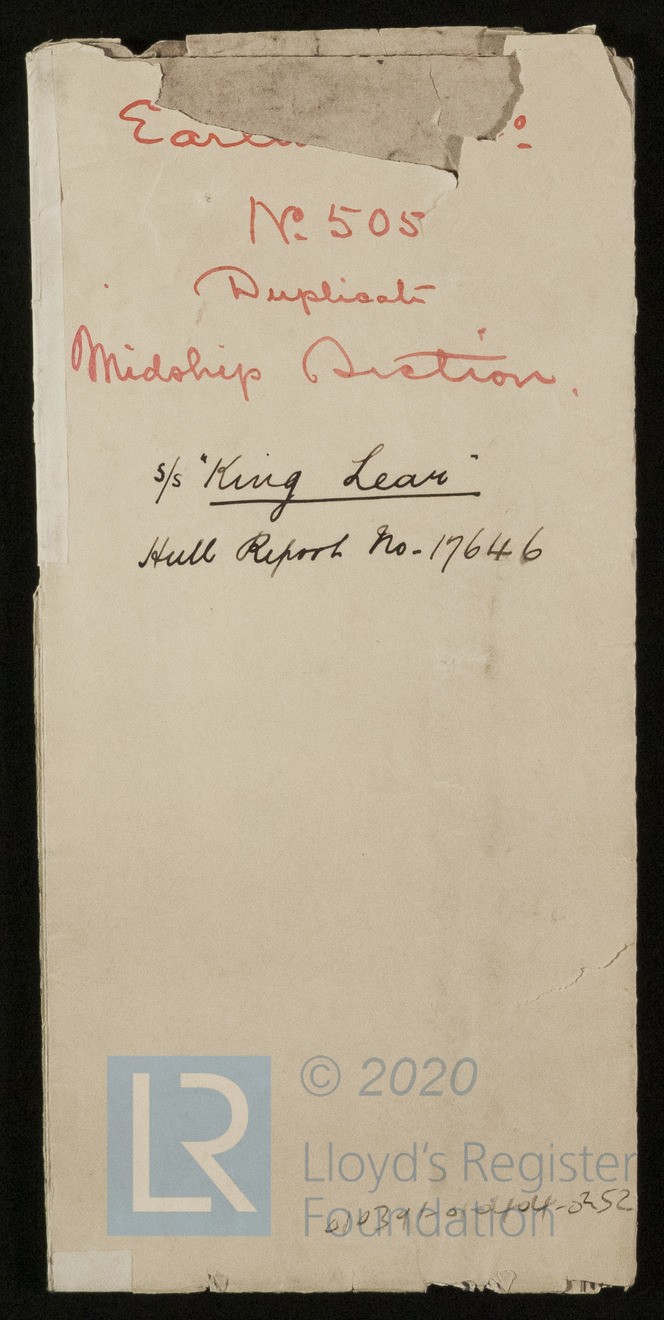 Nº 505
Duplicate
Midship Section.
s/s "King Lear"
Hull Report No-17646
LR
© 2020
Lloyd's Register
Foundation